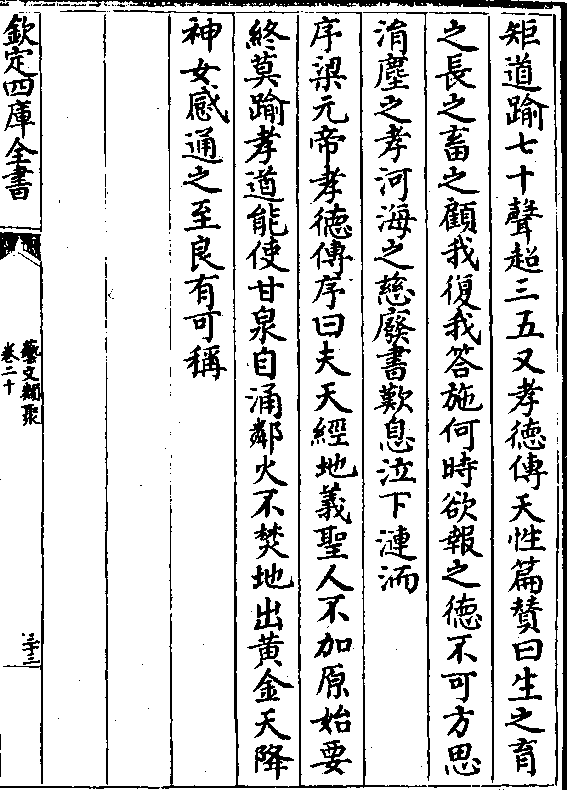 矩道踰七十聲超三五又孝德傳天性篇賛曰生之育
之長之畜之顧我復我答施何時欲報之德不可方思
涓塵之孝河海之慈廢書歎息泣下漣洏
序梁元帝孝德傳序曰夫天經地義聖人不加原始要
終莫踰孝道能使甘泉自涌鄰火不焚地出黄金天降
神女感通之至良有可稱
欽定四庫全書
藝文類聚
卷二十
三十三